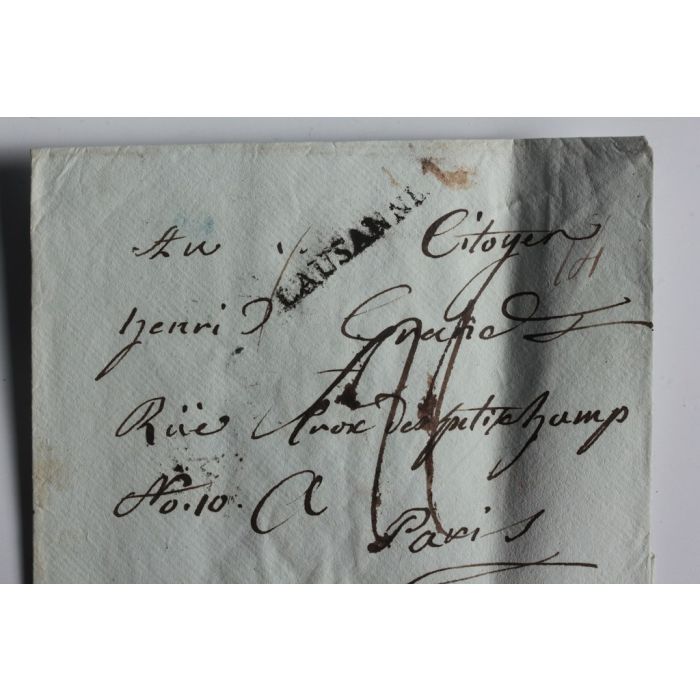 LAUSANNE
Au Citoyen
henri Grand
Rüe Crox Despetitchamp
No. 10. A
Paris